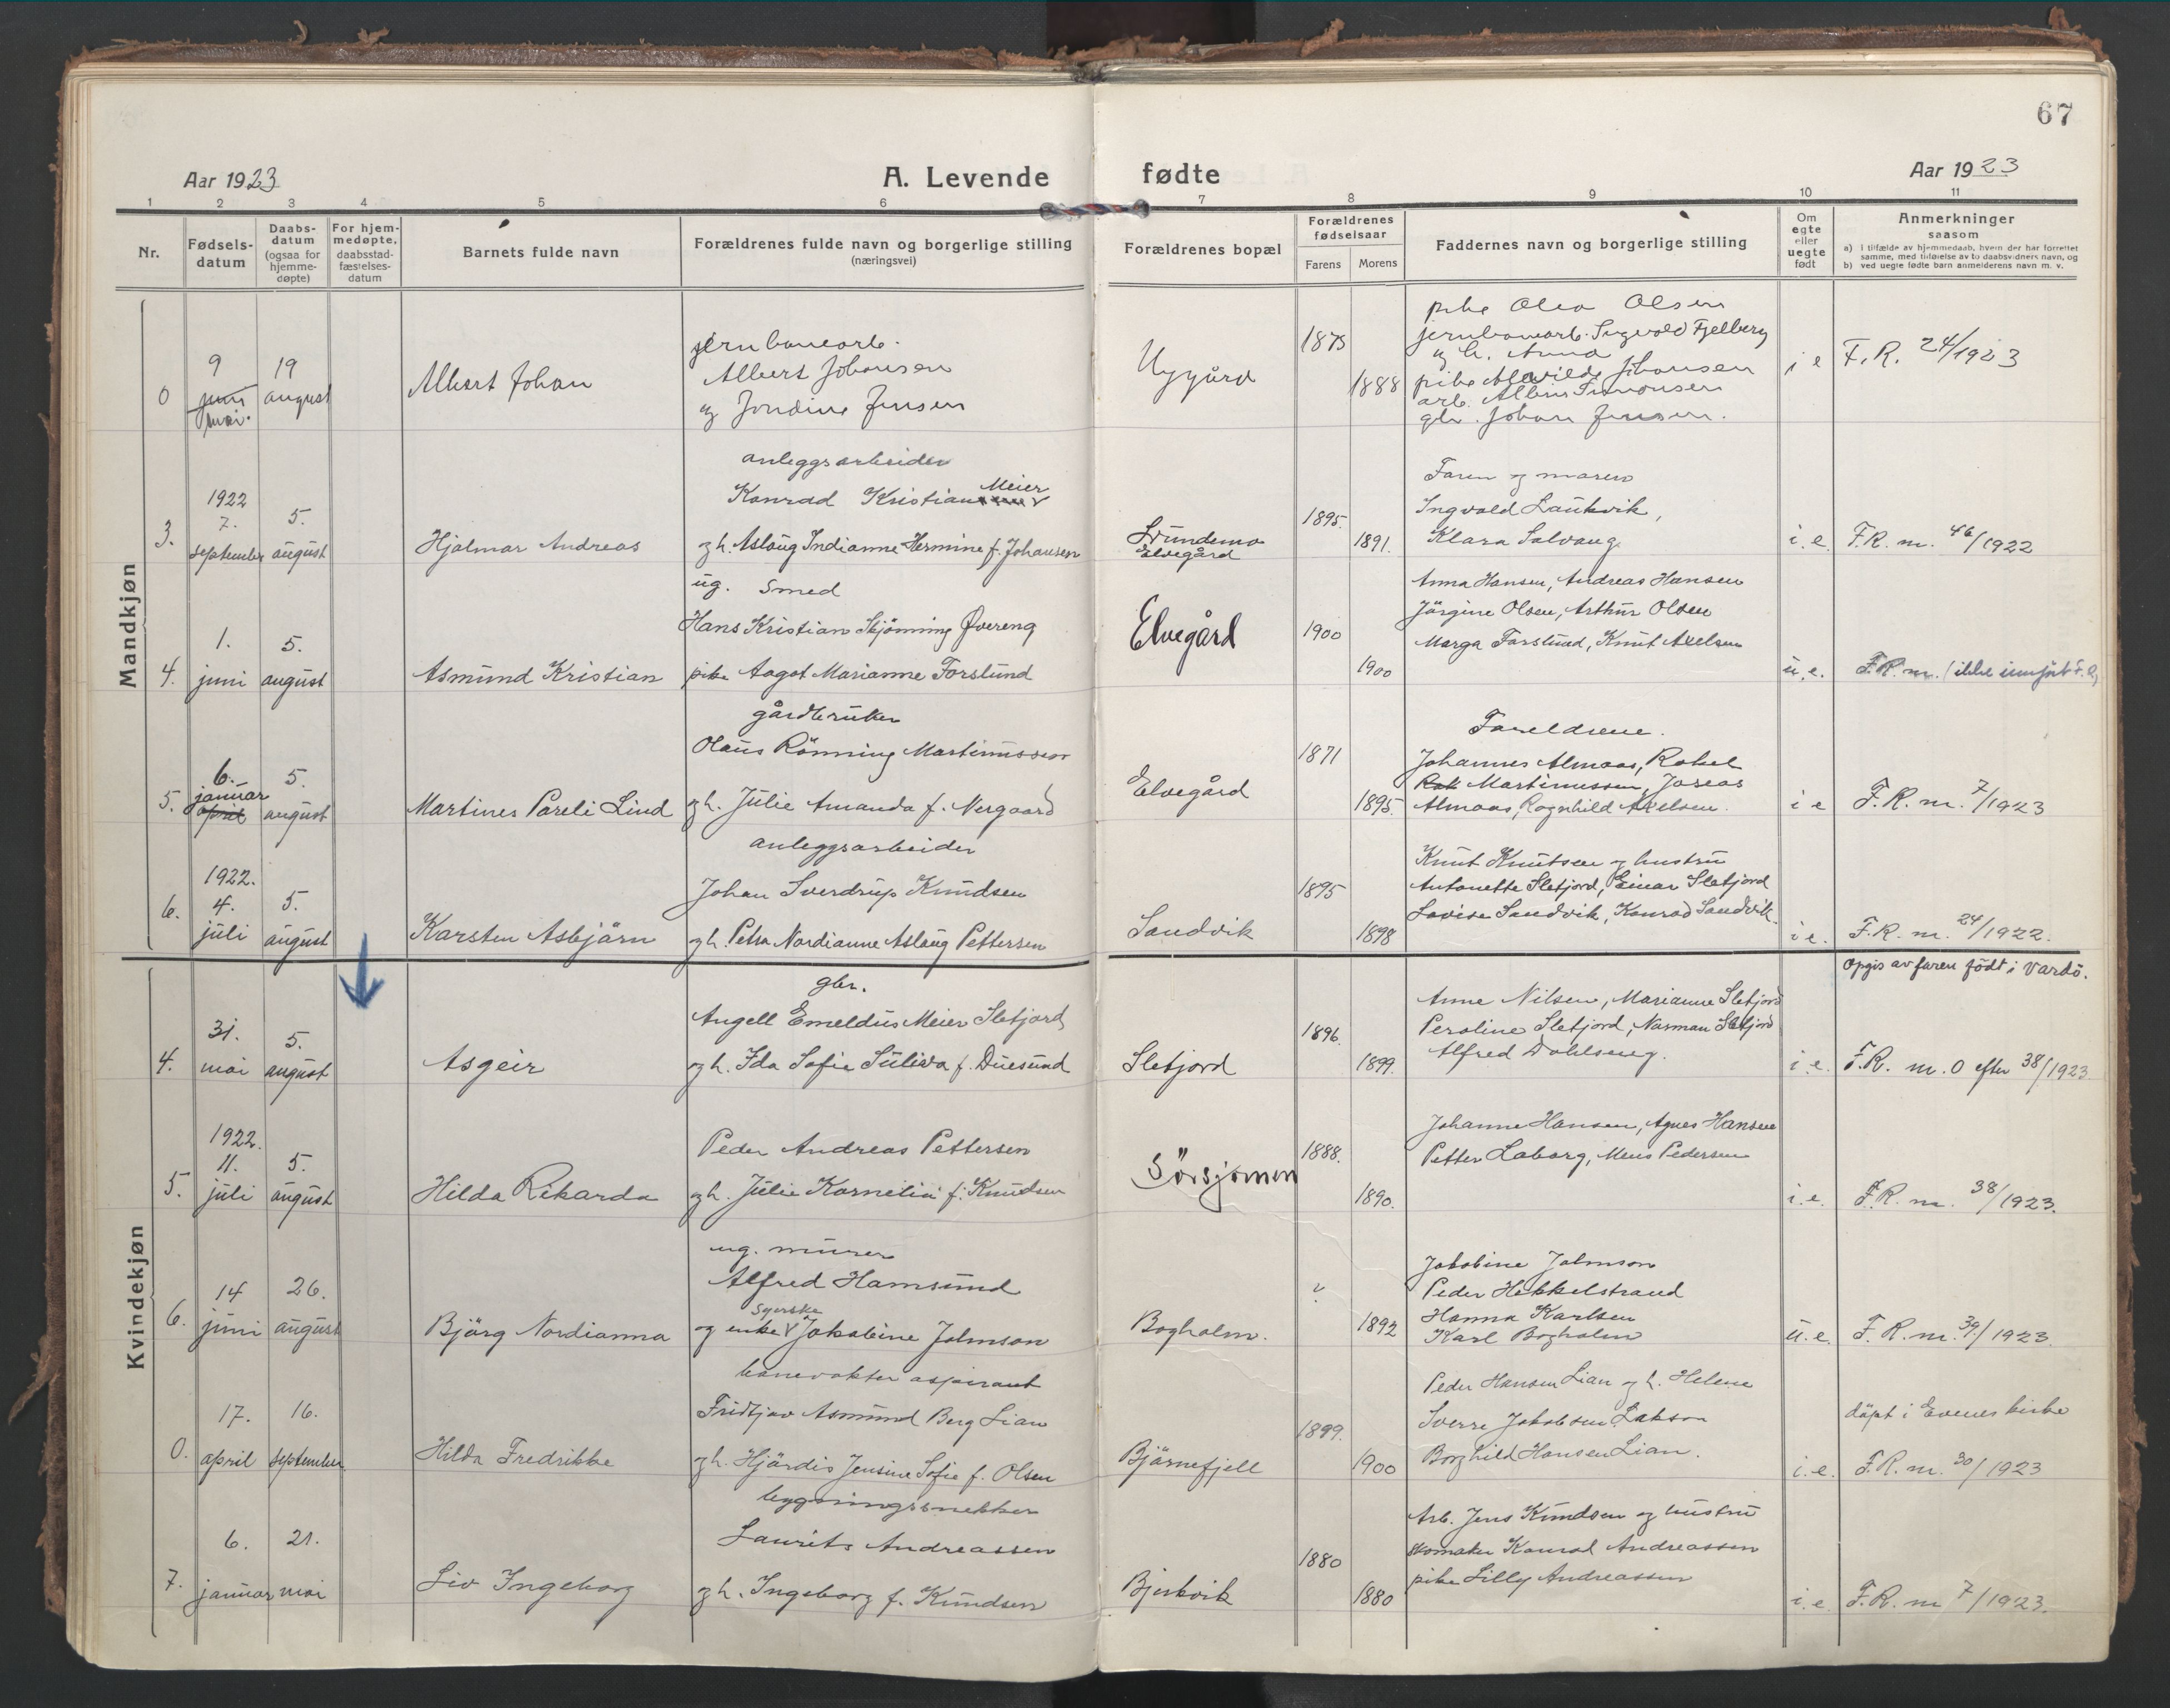 67
Aar 1923
A. Levende
fødte
Aar 1923
1 2 3 4 5 6 7 8 9 10 11
Nr.
Fødsels-
datum
Daabs-
datum
(ogsaa for
hjemme-
døpte)
For hjem-
medøpte,
daabsstad-
fæstelses-
datum
Barnets fulde navn
Forældrenes fulde navn og borgerlige stilling
(næringsvei)
Forældrenes bopæl
Forældrenes
fødselsaar
Farens
Morens
Faddernes navn og borgerlige stilling
Om
egte
eller
uegte
født
Anmerkninger
saasom
a) i tilfælde av hjemmedaab, hvem der har forrettet
samme, med tilføielse av to daabsvidners navn, og
b) ved uegte fødte barn anmelderens navn m. v.
Mandkjøn
0
9
juni
mai.
19
august
Albert Johan
jernbanearb.
Albert Johansen
og Jondine Jensen
Nygård
1875
1888
pike Olea Olsen
jernbanearb. Sigvald Fjelberg
og h. Anna
pike Alvilde Johansen
arb. Albin Simonsen
gbr. Johan Jensen.
i e
F. R. 24/1923
3.
1922
7.
september
5.
august
Hjalmar Andreas
anleggsarbeider
Konrad Kristian Meier
og h. Aslaug Indianne Hermine f. Johansen
Elvegård
1895.
1891.
Faren og moren
Ingvald Laukvik,
Klara Solvang
i. e.
F.R. m. 46/1922
4.
1.
juni
5.
august
Asmund Kristian
ug. smed
Hans Kristian Skjönning Øvereng
pike Aagot Marianne Forslund
Elvegård
1900
1900
Anna Hansen, Andreas Hansen
Jörgine Olsen, Arthur Olsen
Marga Forslund, Knut Axelsen
u. e.
F.R. m. (ikke innfört F.R.)
5.
6.
januar
april
5.
august
Martines Pareli Lind
gårdbruker
Olaus Rönning Martinussen
og h. Julie Amanda f. Nergaard
Elvegård
1871
1895.
Foreldrene.
Johannes Almaas, Rakel
Rak Martinussen, Joseas
Almaas, Ragnhild Axelsen.
i e
F. R. m. 7/1923
6.
1922.
4.
juli
5.
august
Karsten Asbjörn
anleggsarbeider
Johan Sverdrup Knudsen
og h. Petra Nordianne Aslaug Pettersen
Sandvik
1895
1898
Knut Knutsen og hustru
Antonette Sletjord, Einar Sletjord
Lovise Sandvik, Konrad Sandvik.
i e.
F. R. m. 24/1922.
Kvindekjøn
4.
31.
mai
5.
august
Asgeir
gbr.
Angell Emeldus Meier Sletjord
og h. Ida Sofie Suliva f. Duesund
Sletjord
1896.
1899.
Anne Nilsen, Marianne Sletjord
Peroline Sletjord, Norman Sletjord
Alfred Dahlseng.
i. e.
Opgis av faren född i Vardö.
F.R. m. 0 efter 38/1923
5.
1922.
11.
juli
5.
august
Hilda Rikarda
Peder Andreas Pettersen
og h. Julie Kornelia f. Knudsen
Sørsjonen
1888.
1890.
Johanne Hansen, Agnes Hansen
Petter Laborg, Mens Pedersen
i. e.
F.R. m. 38/1923.
6.
14
juni
26.
august
Bjärg Nordianna
ug. murer
Alfred Hamsund
syerske
og enke V Jakobine Johnson
Bogholm.
?
1892
Jakobine Johnson
Peder Hekkelstrand
Hanna Karlsen
Karl Bogholm
u. e.
F. R. m. 39/1923
0.
17.
april
16.
september
Hilda Fredrikke
banevokter aspirant
Fridtjov Asmund Berg Lian
og h. Hjördis Jensine Sofie f. Olsen
Björnefjell
1899.
1900
Peder Hansen Lian og h. Helene
Sverre Jakobsen Lakson
Borghild Hansen Lian.
i. e.
döpt i Evenes kirke
F. R. m. 30/1923
7.
6.
januar
21.
mai
Liv Ingeborg
bygningssnekker
Laurits Andreassen
og h. Ingeborg f. Knudsen
Bjerkvik
1880
1880
Arb. Jens Knudsen og hustru
skomaker Konrad Andreassen
pike Lilly Andreassen
i. e.
F. R. m 7/1923.